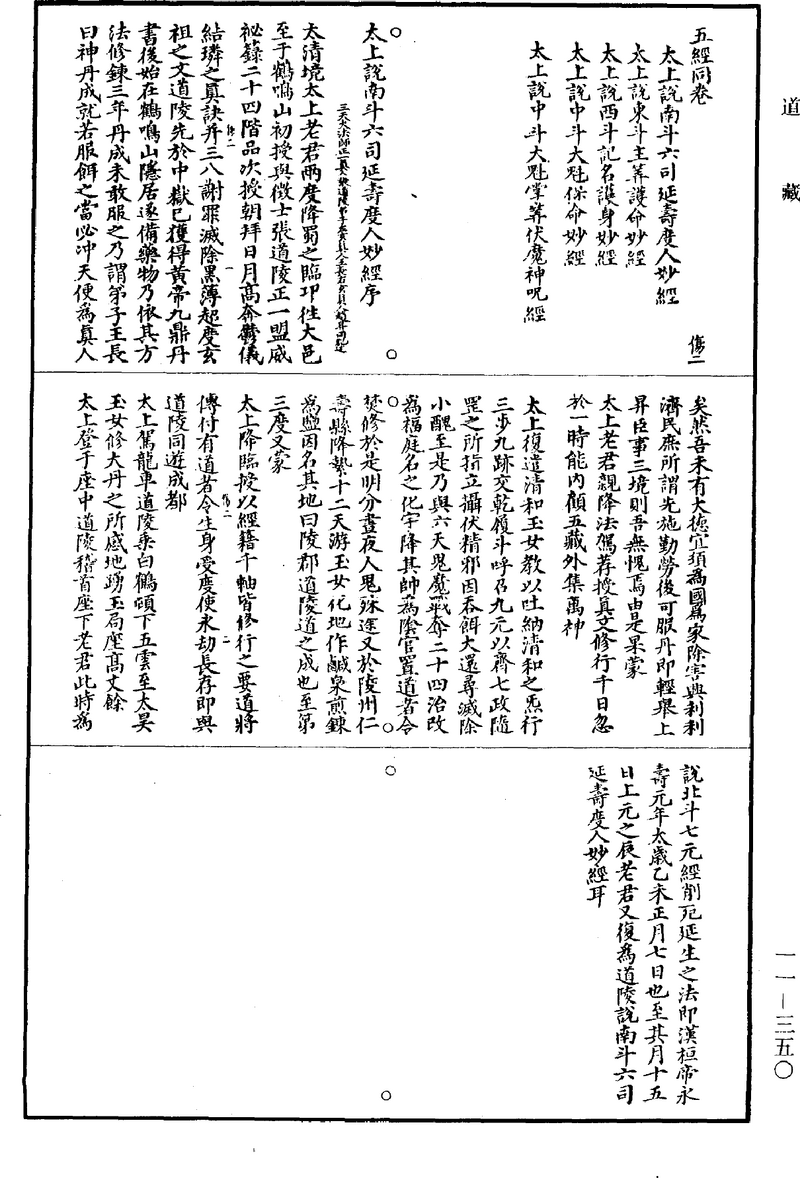 道藏
五經同卷
傷二
太上說南斗六司延壽度人妙經
太上說東斗主筭護命妙經
太上說西斗記名護身妙經
太上說中斗大魁保命妙經
太上說中斗大魁掌筭伏魔神呪經
太上說南斗六司延壽度人妙經序
太清境太上老君兩度降蜀之臨邛往大邑
至于鶴鳴山初授與徵士張道陵正一盟威
祕籙二十四階品次授朝拜日月高奔鬱儀
結璘之真訣并三八謝罪滅除黑簿超度玄
祖之文道陵先於中嶽已獲得黃帝九鼎丹
書後始在鶴鳴山隱居遂備藥物乃依其方
法修鍊三年丹成未敢服之乃謂弟子王長
曰神丹成就若服餌之當必冲天便為真人
矣然吾未有大德宜須為國為家除害興利利
濟民庶所謂先施勤勞後可服丹即輕舉上
昇臣事三境則吾無愧焉由是果蒙
太上老君親降法駕荐授真文修行千日忽
於一時能內顧五藏外集萬神
太上復遣清和玉女教以吐納清和之炁行
三步九跡交乾履斗呼召九元以齊七政隨
罡之所指立攝伏精邪因吞餌大還尋滅除
小醜至是乃與六天鬼魔戰奪二十四治改
為福庭名之化宇降其帥為陰官置道者令
焚修於是明分晝夜人鬼殊途又於陵州仁
壽縣降繫十二天游玉女化地作鹹泉煎鍊
為鹽因名其地曰陵郡道陵道之成也至第
三度又蒙
太上降臨授以經籍千軸皆修行之要道將
傳付有道者令生身受度使永劫長存即與
道陵同遊成都
太上駕龍車道陵乘白鶴頓下五雲至太昊
玉女修大丹之所感地踴玉局座高丈餘
太上登于座中道陵稽首座下老君此時為
說北斗七元經削死延生之法即漢桓帝永
壽元年太歲乙未正月七日也至其月十五
日上元之辰老君又復為道陵說南斗六司
延壽度人妙經耳
一一－三五〇